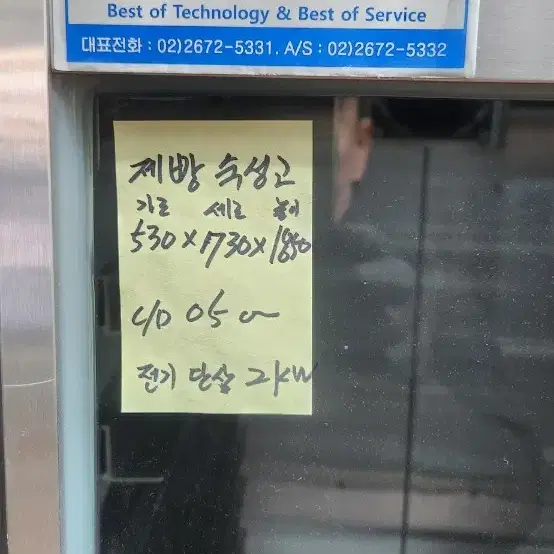 Best of Technology & Best of Service
대표전화 : 02)2672-5331. A/S : 02)2672-5332
제빵 숙성고
가로 세로 높이
530×730×1850
전기 단상 2kW